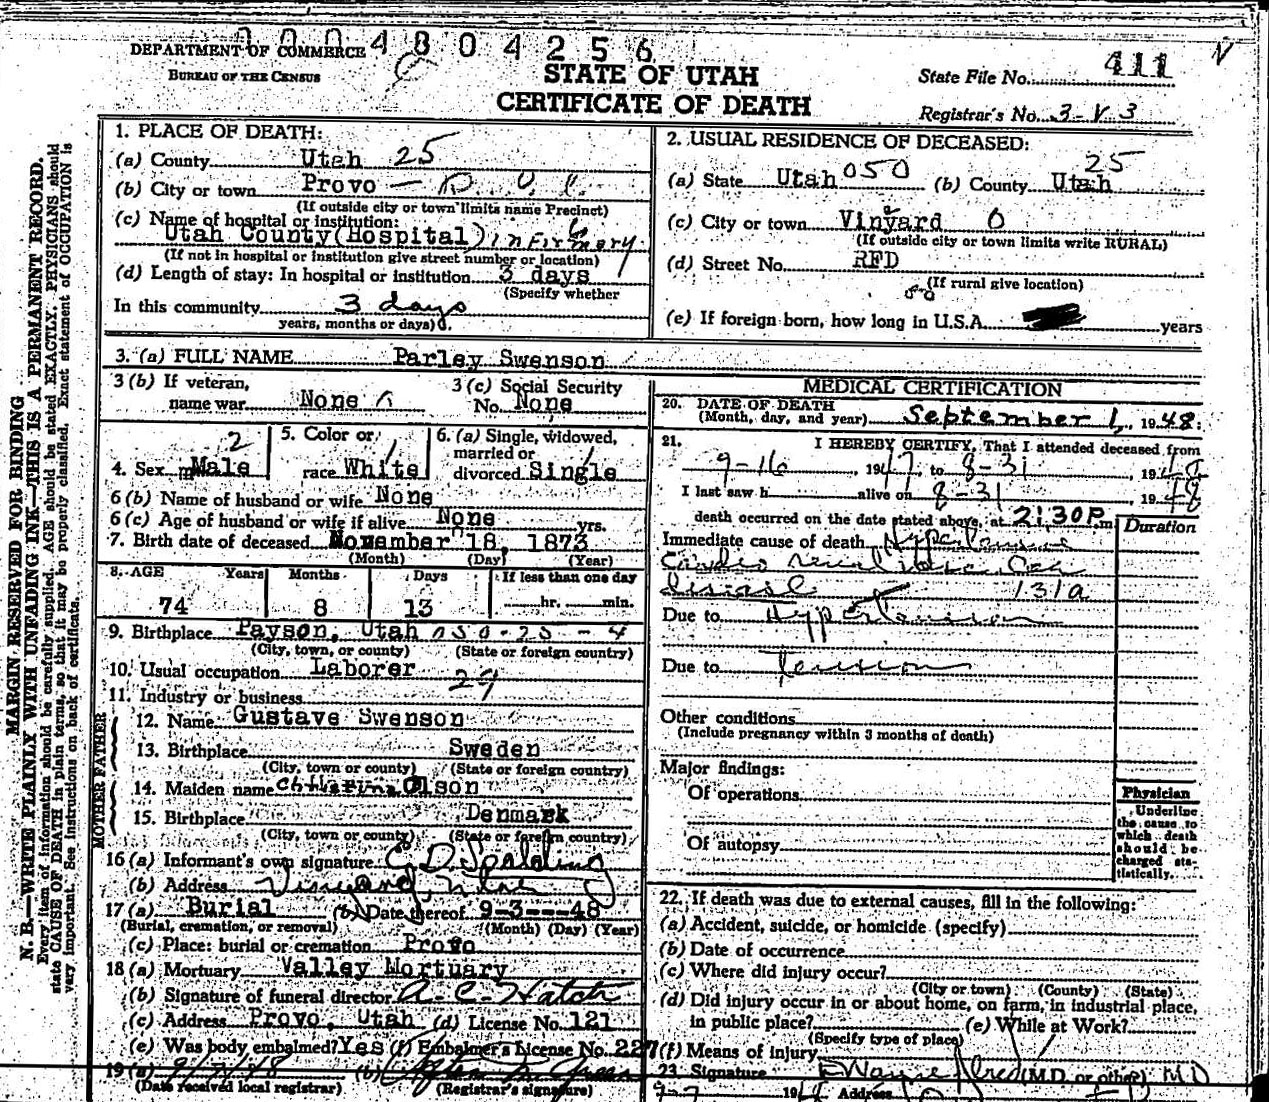 0004804256
DEPARTMENT OF COMMERCE
BUREAU OF THE CENSUS
STATE OF UTAH
CERTIFICATE OF DEATH
State File No. 411
Registrar's No. 3-V 3
MARGIN RESERVED FOR BINDING
N. B.—WRITE PLAINLY WITH UNFADING INK—THIS IS A PERMANENT RECORD.
Every item of information should be carefully supplied. AGE should be stated EXACTLY. PHYSICIANS should
state CAUSE OF DEATH in plain terms, so that it may be properly classified. Exact statement of OCCUPATION is
very important. See instructions on back of certificate.
1. PLACE OF DEATH:
(a) County Utah 25
(b) City or town Provo —
(If outside city or town limits name Precinct)
(c) Name of hospital or institution:
Utah County (Hospital) infirmary
(If not in hospital or institution give street number or location)
(d) Length of stay: In hospital or institution 3 days
(Specify whether
In this community 3 days
years, months or days)
2. USUAL RESIDENCE OF DECEASED:
(a) State Utah 050 (b) County Utah 25
(c) City or town Vinyard 0
(If outside city or town limits write RURAL)
(d) Street No. RFD
(If rural give location)
(e) If foreign born, how long in U.S.A. years
3. (a) FULL NAME Parley Swenson
3 (b) If veteran,
name war None
3 (c) Social Security
No. None
4. Sex Male 2
5. Color or
race White
6. (a) Single, widowed,
married or
divorced Single
6 (b) Name of husband or wife None
6 (c) Age of husband or wife if alive None yrs.
7. Birth date of deceased November 18, 1873
(Month) (Day) (Year)
8. AGE Years Months Days If less than one day
74 8 13 hr. min.
9. Birthplace Payson, Utah 050-25-4
(City, town, or county) (State or foreign country)
10. Usual occupation Laborer
11. Industry or business
FATHER
12. Name Gustave Swenson
13. Birthplace Sweden
(City, town or county) (State or foreign country)
MOTHER
14. Maiden name Olson
15. Birthplace Denmark
(City, town or county) (State or foreign country)
16 (a) Informant's own signature D. Spalding
(b) Address Vinyard, Utah
17 (a) Burial (b) Date thereof 9-3---48
(Burial, cremation, or removal) (Month) (Day) (Year)
(c) Place: burial or cremation Provo
18 (a) Mortuary Valley Mortuary
(b) Signature of funeral director A. C. Hatch
(c) Address Provo, Utah (d) License No. 121
(e) Was body embalmed? Yes (f) Embalmer's License No. 227
19 (a) (b)
(Date received local registrar) (Registrar's signature)
MEDICAL CERTIFICATION
20. DATE OF DEATH
(Month, day, and year) September 1, 1948:
21. I HEREBY CERTIFY, That I attended deceased from
9-16, 1947 to 8-31, 1948
I last saw h alive on 8-31, 1948
death occurred on the date stated above, at 2:30P m
Duration
Immediate cause of death Hypertensive
Cardio renal
disease 131a
Due to Hypertension
Due to Tension
Other conditions
(Include pregnancy within 3 months of death)
Major findings:
Of operations
Of autopsy
Physician
Underline
the cause to
which death
should be
charged sta-
tistically.
22. If death was due to external causes, fill in the following:
(a) Accident, suicide, or homicide (specify)
(b) Date of occurrence
(c) Where did injury occur?
(City or town) (County) (State)
(d) Did injury occur in or about home, on farm, in industrial place,
in public place? (e) While at Work?
(Specify type of place)
(f) Means of injury
23. Signature Wayne Allred (M.D. or other) MD
Address